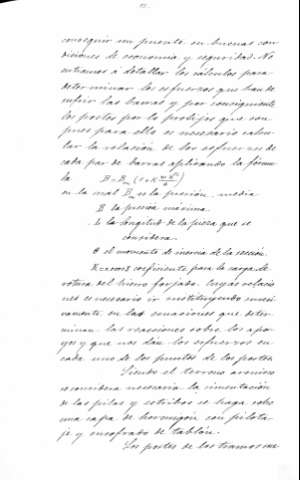 conseguir un puente en buenas con
diciones de economia y seguridad. No
entramos á detallar los cálculos para
determinar los esfuerzos que han de
sufrir las barras y por consiguiente
los postes por lo prolijos que son
pues para ello es necesario calcu-
lar la relación de los esfuerzos de
cada par de barras aplicando la fórmu
la
en la cual Bm es la presión media
B la presión máxima
L la longitud de la pieza que se
considera
el momento de inercia de la sección
K = coeficiente para la carga de
rotura del hierro forjado. Cuyas relacio
nes es necesario ir sustituyendo nueva
vamente en las ecuaciones que deter-
minan las reacciones sobre los apo-
yos y que nos dan los esfuerzos en
cada uno de los puntos de los postes.
Siendo el terreno arenisco
se considera necesaria la cimentación
de las pilas y estribos se haga sobre
una capa de hormigón con pilota-
je y encofrado de tablón.
Los postes de los tramos